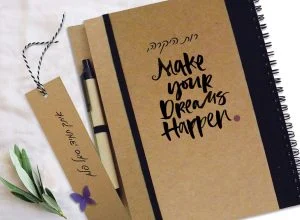 רות היקרה,
Make
your
Dreams
Happen.